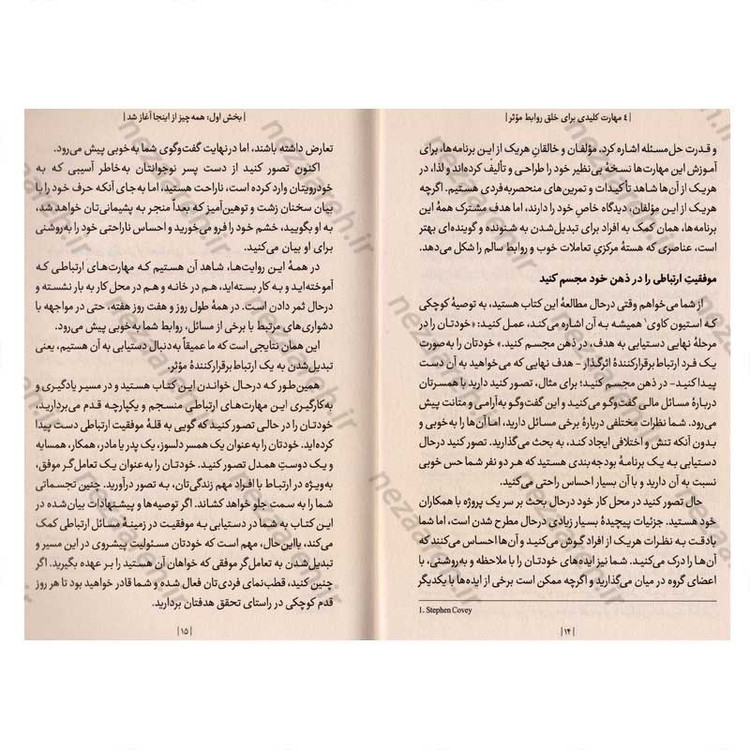 | ۴ مهارت کلیدی برای خلق روابط مؤثر |
و قدرت حل‌مسئله اشاره کرد. مؤلفان و خالقانِ هریک از این برنامه‌ها، برای
آموزش این مهارت‌ها نسخهٔ بی‌نظیر خود را طراحی و تألیف کرده‌اند و لذا، در
هریک از آن‌ها شاهد تأکیدات و تمرین‌های منحصربه‌فردی هستیم. اگرچه
هریک از این مؤلفان، دیدگاه خاصِ خود را دارند، اما هدف مشترک همهٔ این
برنامه‌ها، همان کمک به افراد برای تبدیل‌شدن به شنونده و گوینده‌ای بهتر
است، عناصری که هستهٔ مرکزیِ تعاملات خوب و روابط سالم را شکل می‌دهد.
موفقیتِ ارتباطی را در ذهن خود مجسم کنید
از شما می‌خواهم وقتی درحال مطالعهٔ این کتاب هستید، به توصیهٔ کوچکی
که استیون کاوی¹ همیشه به آن اشاره می‌کند، عمل کنید: «خودتان را در
مرحلهٔ نهایی دستیابی به هدف، در ذهن مجسم کنید.» خودتان را به‌صورت
یک فرد ارتباط‌برقرارکنندهٔ اثرگذار – هدف نهایی که می‌خواهید به آن دست
پیدا کنید – در ذهن مجسم کنید؛ برای مثال، تصور کنید دارید با همسرتان
دربارهٔ مسائل مالی گفت‌وگو می‌کنید و این گفت‌وگو به‌آرامی و متانت پیش
می‌رود. شما نظرات مختلفی دربارهٔ برخی مسائل دارید، اما آن‌ها را به‌خوبی و
بدون آنکه تنش و اختلافی ایجاد کند، به بحث می‌گذارید. تصور کنید درحال
دستیابی به یک برنامهٔ بودجه‌بندی هستید که هر دو نفر شما حس خوبی
نسبت به آن دارید و با آن بسیار احساس راحتی می‌کنید.
حال تصور کنید در محل کار خود درحال بحث بر سر یک پروژه با همکاران
خود هستید. جزئیات پیچیدهٔ بسیار زیادی درحال مطرح شدن است، اما شما
بادقت به نظرات هریک از افراد گوش می‌کنید و آن‌ها احساس می‌کنند که
آن‌ها را درک می‌کنید. شما نیز ایده‌های خودتان را با ملاحظه و به‌روشنی، با
اعضای گروه در میان می‌گذارید و اگرچه ممکن است برخی از ایده‌ها با یکدیگر
1. Stephen Covey
| ۱۴ |
| بخش اول: همه چیز از اینجا آغاز شد |
تعارض داشته باشند، اما درنهایت گفت‌وگوی شما به‌خوبی پیش می‌رود.
اکنون تصور کنید از دست پسر نوجوانتان به‌خاطر آسیبی که به
خودرویتان وارد کرده است، ناراحت هستید، اما به‌جای آنکه حرف خود را با
بیان سخنان زشت و توهین‌آمیز که بعداً منجر به پشیمانی‌تان خواهد شد،
به او بگویید، خشم خود را فرو می‌خورید و احساس ناراحتی خود را به‌روشنی
برای او بیان می‌کنید.
در همهٔ این روایت‌ها، شاهد آن هستیم که مهارت‌های ارتباطی که
آموخته‌اید و به کار بسته‌اید، هم در خانه و هم در محل کار به بار نشسته و
درحال ثمر دادن است. در همهٔ طول روز و هفت روز هفته، حتی در مواجهه با
دشواری‌های مرتبط با برخی از مسائل، روابط شما به‌خوبی پیش می‌رود.
این همان نتایجی است که ما عمیقاً به‌دنبال دستیابی به آن هستیم، یعنی
تبدیل‌شدن به یک ارتباط‌برقرارکنندهٔ مؤثر.
همین‌طور که درحال خواندن این کتاب هستید و در مسیر یادگیری و
به‌کارگیری این مهارت‌های ارتباطی منسجم و یکپارچه قدم می‌بردارید،
خودتان را در حالتی تصور کنید که گویی به قلهٔ موفقیت ارتباطی دست پیدا
کرده‌اید. خودتان را به‌عنوان یک همسر دلسوز، یک پدر یا مادر، همکار، همسایه
و یک دوستِ همدل تصور کنید. خودتان را به‌عنوان یک تعامل‌گر موفق،
به‌ویژه در ارتباط با افراد مهم زندگی‌تان، به تصور درآورید. چنین تجسماتی
شما را به سمت جلو خواهد کشاند. اگر توصیه‌ها و پیشنهادات بیان‌شده در
این کتاب به شما در دستیابی به موفقیت در زمینهٔ مسائل ارتباطی کمک
می‌کند، بااین‌حال، مهم است که خودتان مسئولیت پیشروی در این مسیر و
تبدیل‌شدن به تعامل‌گر موفقی که خواهان آن هستید را بر عهده بگیرید. اگر
چنین کنید، قطب‌نمای فردی‌تان فعال شده و شما قادر خواهید بود تا هر روز
قدم کوچکی در راستای تحقق هدفتان بردارید.
| ۱۵ |
nezaareh.ir